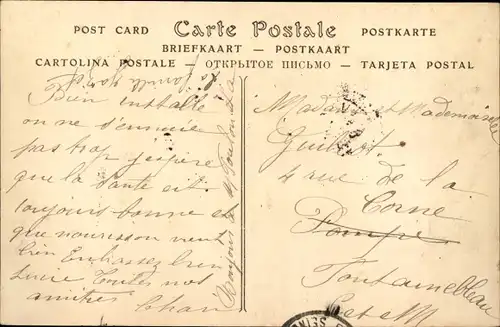 POST CARD Carte Postale POSTKARTE
BRIEFKAART — POSTKAART
CARTOLINA POSTALE — ОТКРЫТОЕ ПИСЬМО — TARJETA POSTAL
Bien installé
on ne s'ennuie
pas trop j'espère
que la santé est
toujours bonne et
que nourisson vient
bien Embrassez bien
Lucie Toutes nos
amitiés
Madame et Mademoiselle
Guibert
4 rue de la
Corne
Fontainebleau
Set M